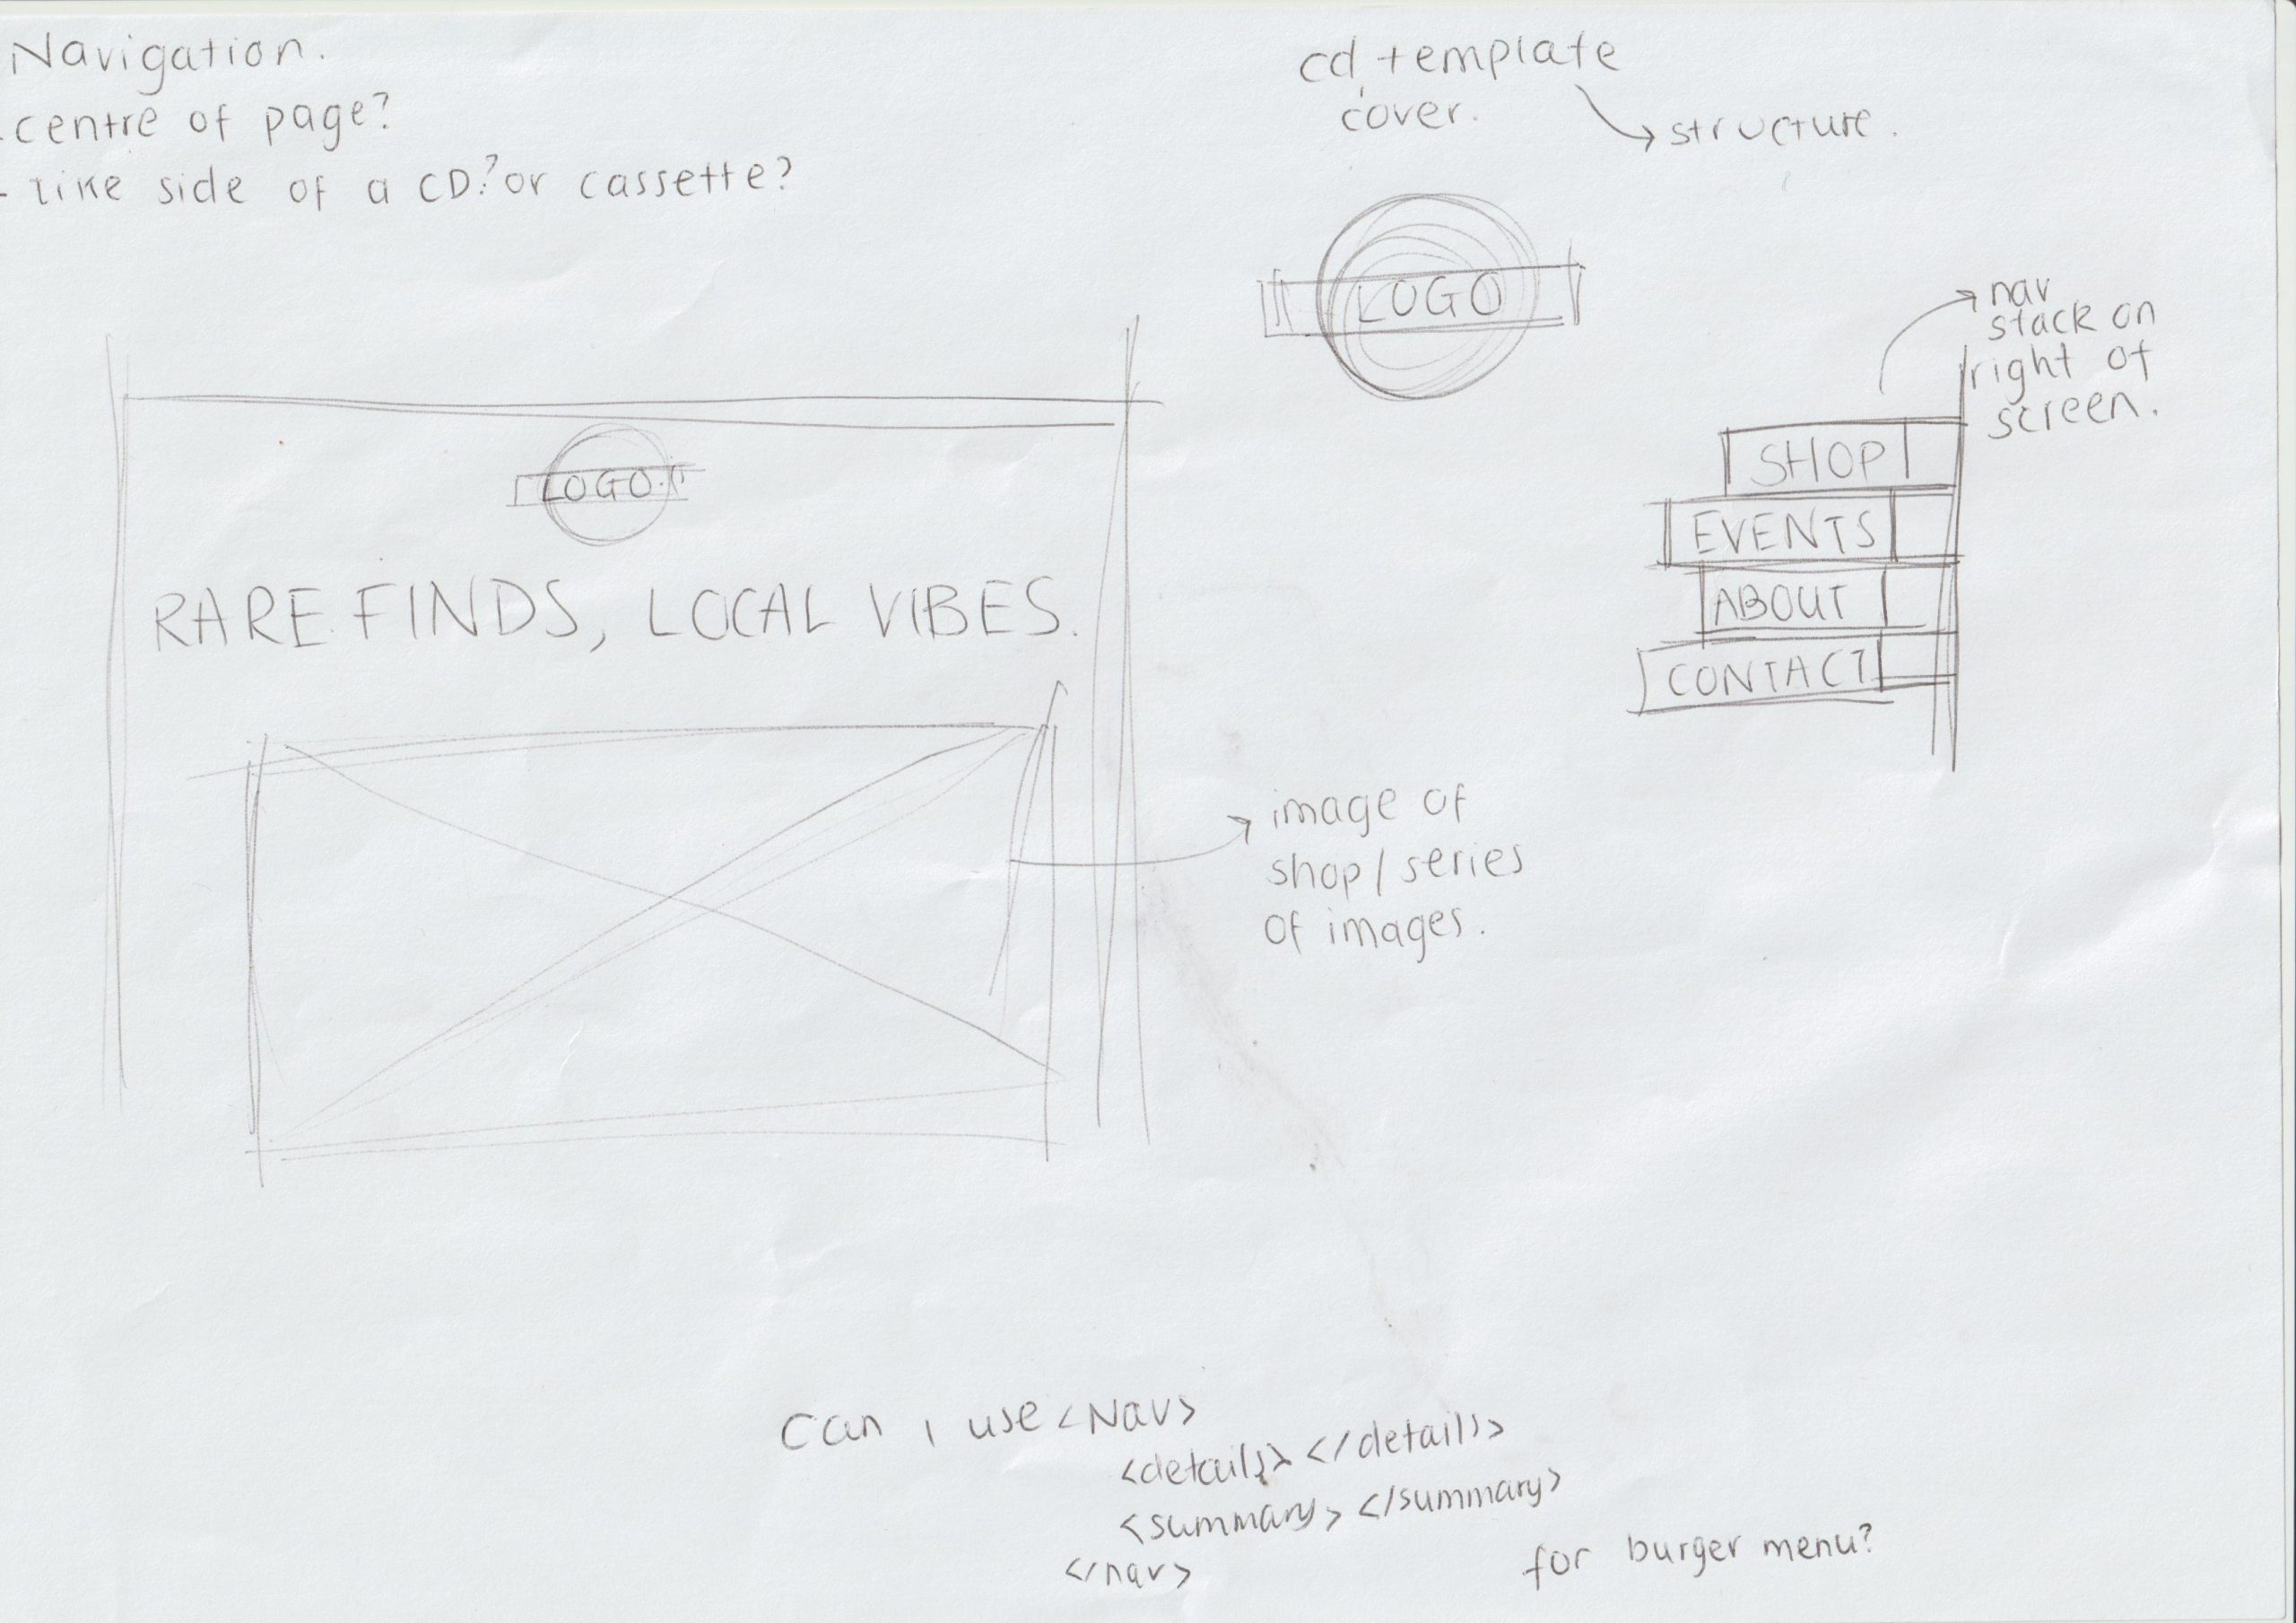 Navigation.
- centre of page?
- like side of a CD? or cassette?
cd template
cover.
structure.
LOGO
nav
stack on
right of
screen.
SHOP
EVENTS
ABOUT
CONTACT
LOGO
RARE FINDS, LOCAL VIBES.
image of
shop / series
of images.
Can i use <Nav>
<details> </details>
<summary> </summary>
</nav>
for burger menu?